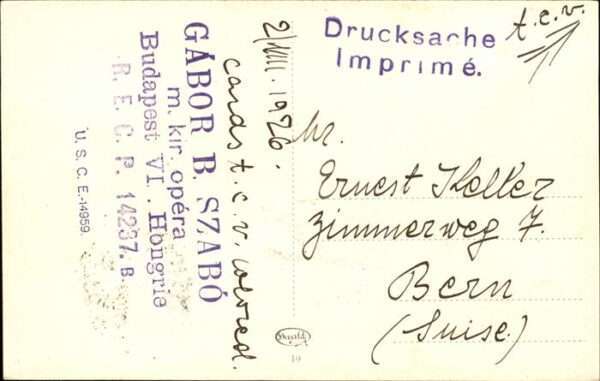 Drucksache
Imprimé.
t.c.v.
Hr.
Ernest Keller
Zimmerweg 7.
Bern
(Suisse)
2/VIII. 1926.
cards t. c. v. colored.
GÁBOR B. SZABÓ
m. kir. opéra
Budapest VI. Hongrie
R. E. C. P. 14237. B.
U. S. C. E.-14959.